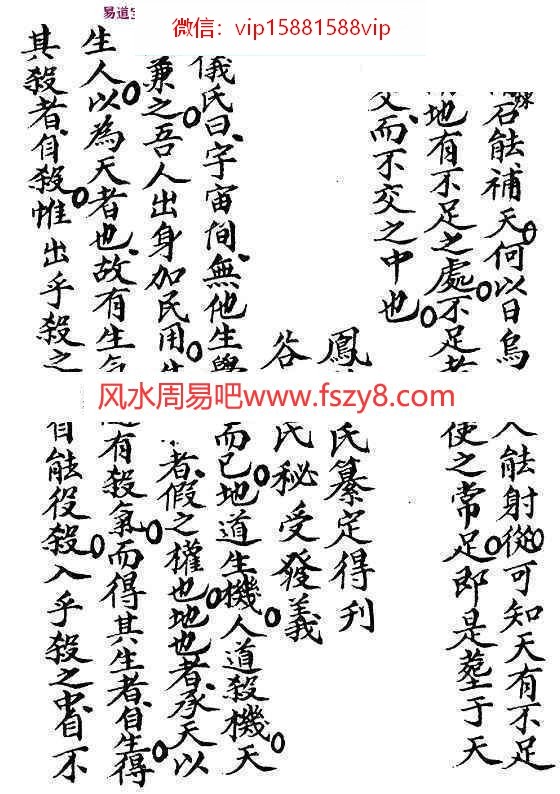 易道
微信：vip15881588vip
石能補天何以日烏
地有不足之處不足者
交而不交之中也
鳳
谷
儀氏曰宇宙間無他生
兼之吾人出身加民用
生人以為天者也故有生氣
其殺者自殺惟出乎殺之
风水周易吧www.fszy8.com
能射從可知天有不足
使之常足即是塟于天
氏纂定得刋
氏秘受發義
而已地道生機人道殺機天
者假之權也地也者承天以
有殺氣而得其生者自生得
自能役殺入乎殺之中自不